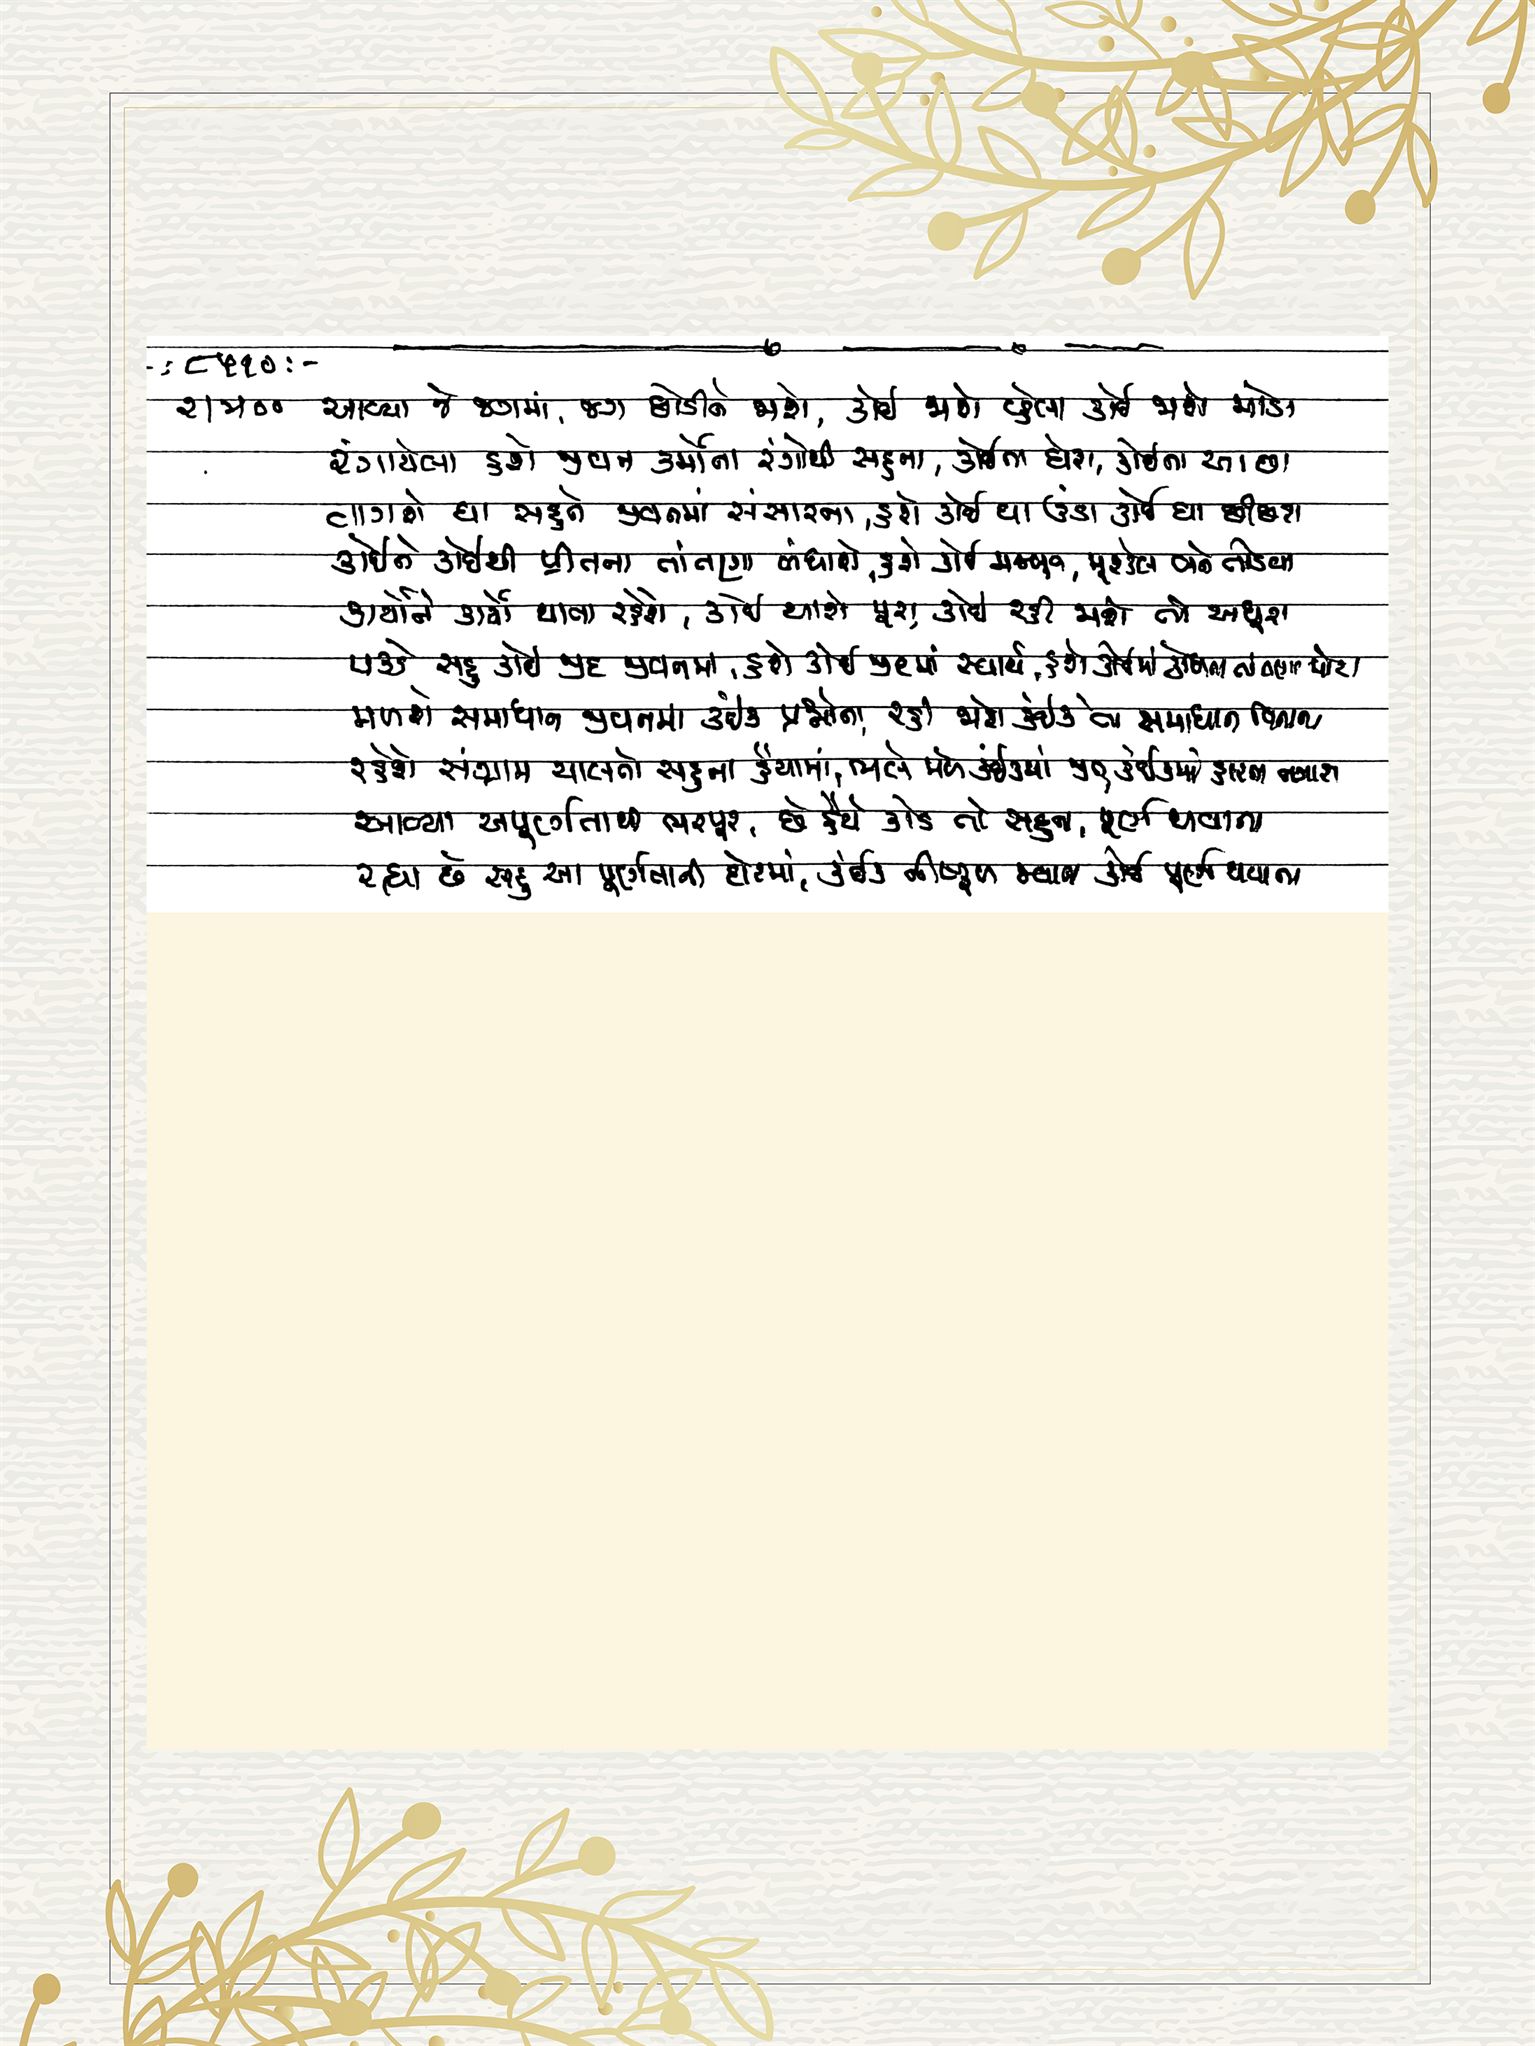 -: ૮૫૧૦ :-
૨/૫૦૦ આવ્યા જે જગમાં, જગ છોડીને જાશે, કોઈ જાશે વ્હેલા કોઈ જાશે મોડા
રંગાયેલા હશે જીવન કર્મોના રંગોથી સહુના, કોઈના ઘેરા, કોઈના આછા
લાગશે ઘા સહુને જીવનમાં સંસારના, હશે કોઈ ઘા ઉંડા કોઈ ઘા છીછરા
કોઈને કોઈથી પ્રીતના તાંતણા બંધાશે, હશે કોઈ મજબૂત, મૂશ્કેલ બને તોડવા
કાર્યોને કાર્યો થાતા રહેશે, કોઈ થાશે પૂરા, કોઈ રહી જાશે તો અધૂરા
પકડે સહુ કોઈ જીદ જીવનમાં, હશે કોઈ જીદમાં સ્વાર્થ, હશે કોઈમાં
મળશે સમાધાન જીવનમાં કંઈક પ્રશ્નોના, રહી જાશે કંઈક તો સમાધાન વિનાના
રહેશે સંગ્રામ ચાલતો સહુના હૈયામાં, ભલે મળે કંઈકમાં જીત, કંઈકમાં હારના નગારા
આવ્યા અપૂર્ણતાથી ભરપૂર, છે હૈયે કોડ તો સહુના, પૂર્ણ થાવાના
રહ્યા છે સહુ આ પૂર્ણતાની દોટમાં, કંઈક નીષ્ફળ ગયા કોઈ પૂર્ણ થવાના